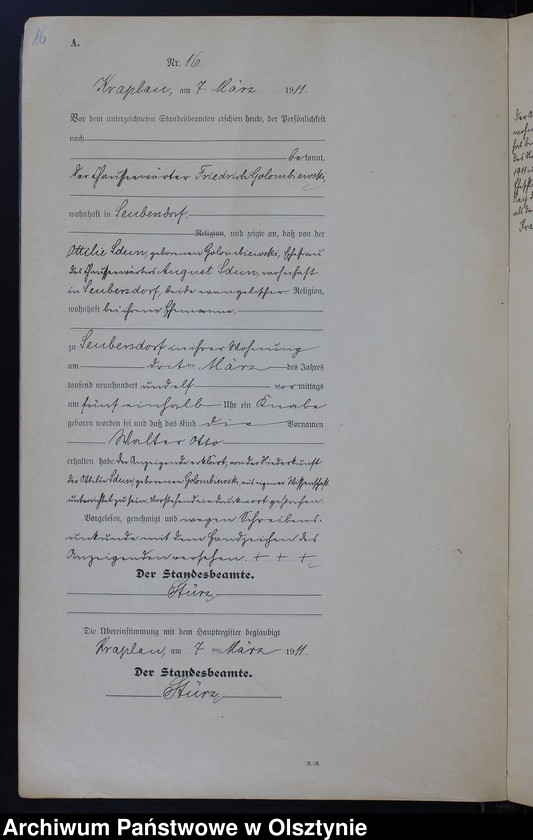 16
A.
Nr. 16.
Kraplau, am 7 März 1911.
Vor dem unterzeichneten Standesbeamten erschien heute, der Persönlichkeit
nach
bekannt,
der Chausseewärter Friedrich Golombiewski,
wohnhaft in Seubersdorf,
Religion, und zeigte an, daß von der
Ottilie Sdun, geborenen Golombiewski, Ehefrau
des Chausseewärters August Sdun, wohnhaft
in Seubersdorf, beide evangelischer Religion,
wohnhaft bei ihrem Ehemanne,
zu Seubersdorf in ihrer Wohnung
am dritten März des Jahres
tausend neunhundert und elf vormittags
um fünf einhalb Uhr ein Knabe
geboren worden sei und daß das Kind die Vornamen
Walter Otto
erhalten habe. Der Anzeigende erklärt, von der Niederkunft
der Ottilie Sdun, geborenen Golombiewski, aus eigener Wissenschaft
unterrichtet zu sein. Vorstehend ein Druckwort gestrichen.
Vorgelesen, genehmigt und wegen Schreibens-
unkunde mit dem Handzeichen des
Anzeigenden versehen. + + +
Der Standesbeamte.
Stürz
Die Übereinstimmung mit dem Hauptregister beglaubigt
Kraplau, am 7 ten März 1911.
Der Standesbeamte.
Stürz
Archiwum Państwowe w Olsztynie